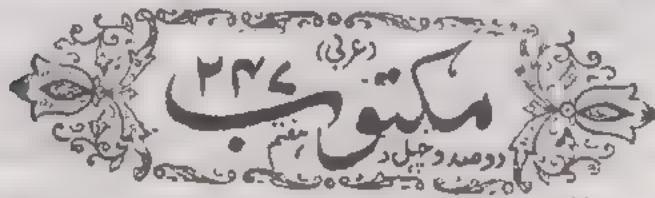 (عربی)
مکتوب ۲۴۷
دو صد و چہل و ہفتم